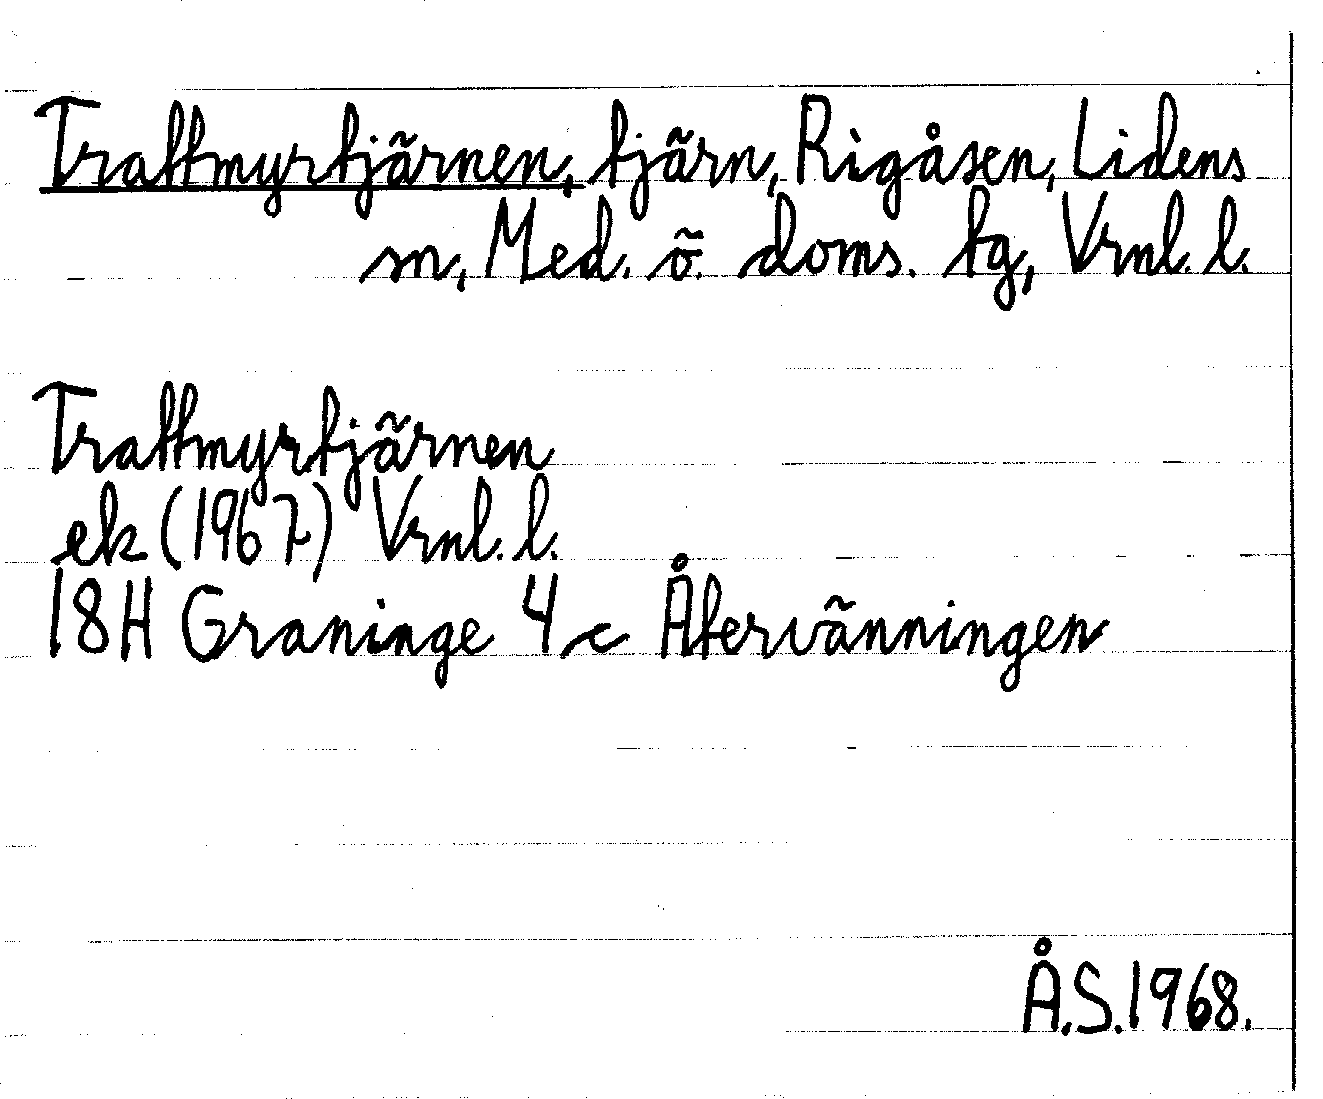 Trattmyrtjärnen, tjärn, Rigåsen, Lidens
sn, Med. ö. doms. tg, Vrnl. l.
Trattmyrtjärnen
ek (1967) Vrnl. l.
18H Graninge 4c Återvänningen
Å.S.1968.